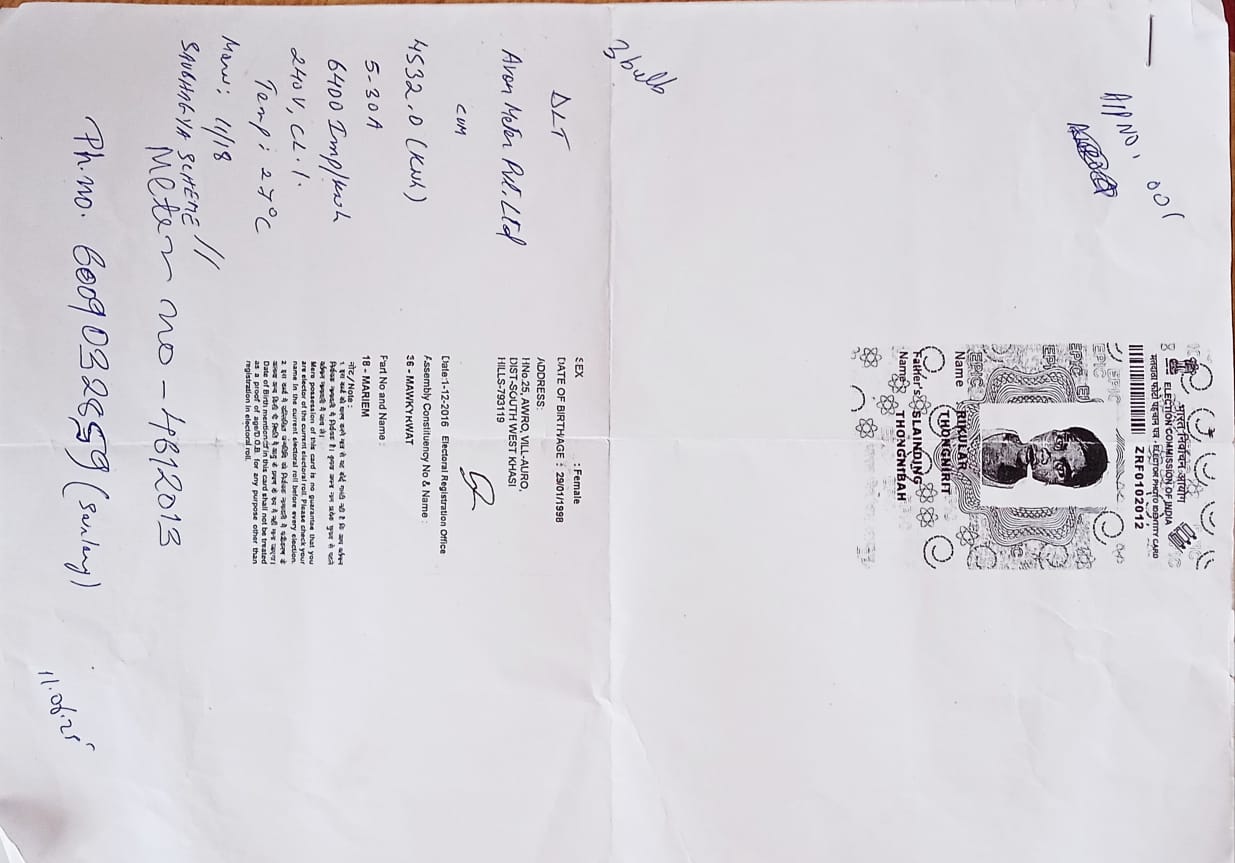 A/P NO. 001
भारत निर्वाचन आयोग
ELECTION COMMISSION OF INDIA
भारतीय फोटो पहचान पत्र - ELECTOR PHOTO IDENTITY CARD
ZRF0102012
Name RIKULAR THONGNIRIT
Father's Name SLAINDING THONGNIBAH
3 bulb
DLT
Avon Meter Pvt. Ltd
cum
4532.0 (kwh)
5-30A
6400 Imp/kwh
240V, CL.1.
Temp: 27°C
Manu: 11/18
SAUBHAGYA SCHEME //
SEX : Female
DATE OF BIRTH/AGE : 29/01/1998
ADDRESS:
HNo.25, AWRO, VILL-AURO,
DIST-SOUTH WEST KHASI
HILLS-793119
Date:1-12-2016 Electoral Registration Office
Assembly Constituency No & Name :
36 - MAWKYRWAT
Part No and Name :
18 - MARIEM
नोट/Note :
Mere possession of this card is no guarantee that you
are elector of the current electoral roll. Please check your
name in the current electoral roll before every election.
Date of Birth mentioned in this card shall not be treated
as a proof of age/D.O.B. for any purpose other than
registration in electoral roll.
Meter no - 4B12013
Ph.no.